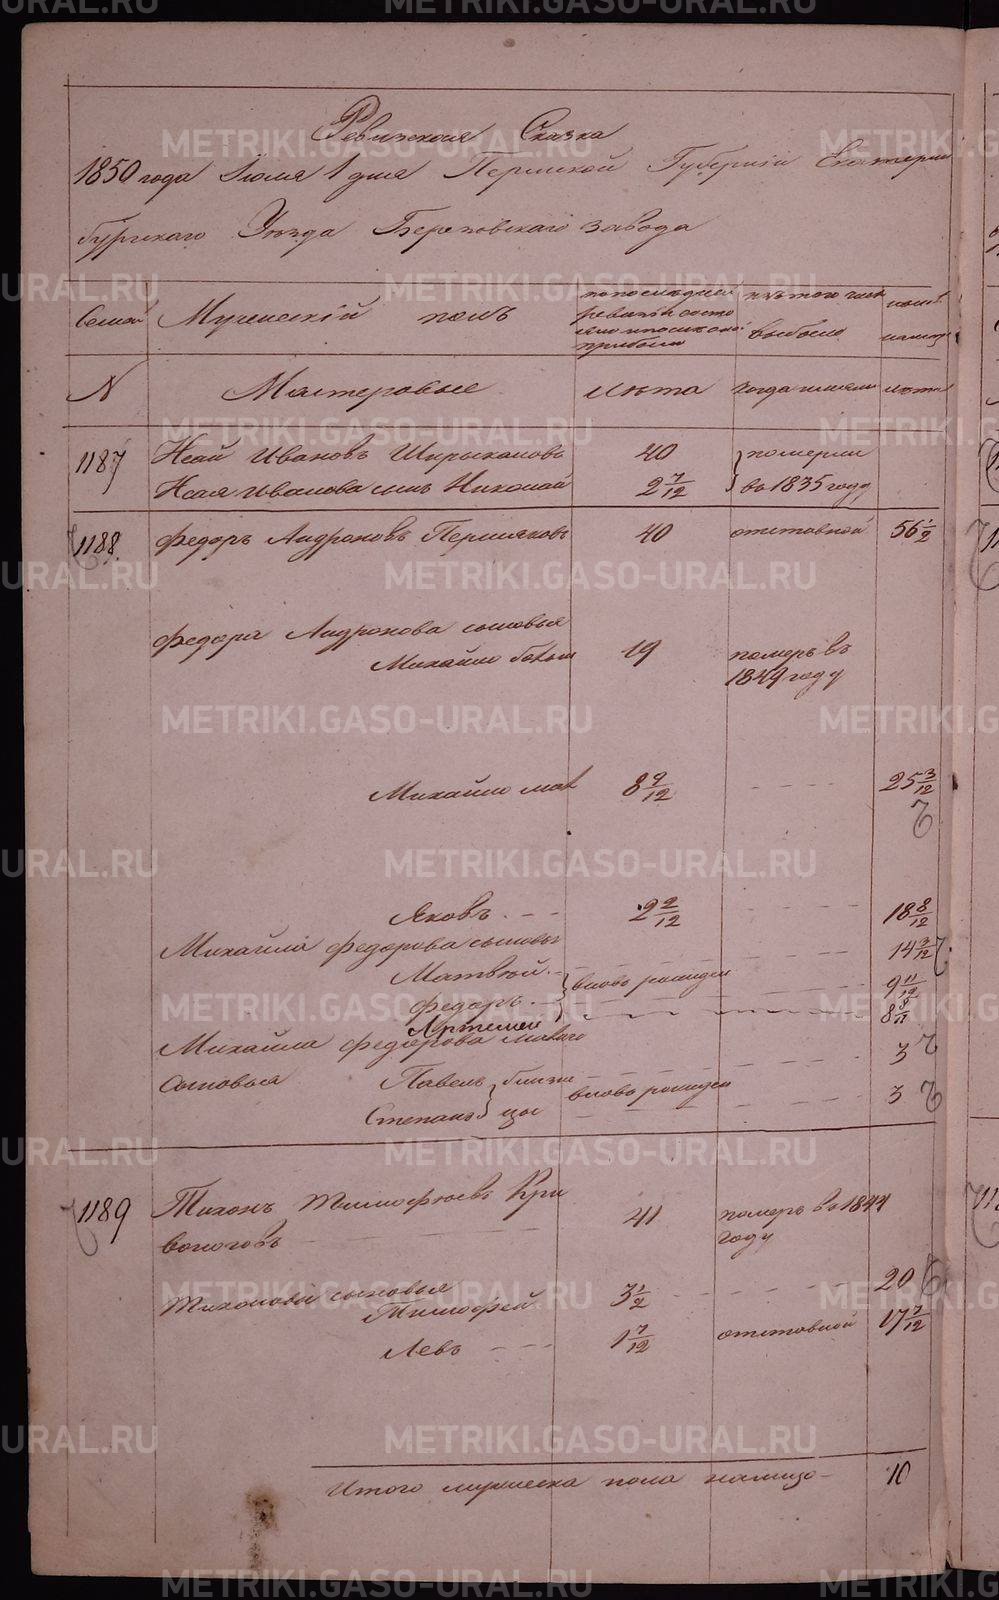 Ревизская Сказка
1850 года Июля 1 дня Пермской Губернии Екатерин
бургскаго Уѣзда Березовскаго завода
Семей Мужескій полъ по последней ревизіи состо яло и после оной прибыло изъ того числа выбыло ныне на лицо
N Мастеровые Лѣта когда имянно лѣта
1187 Исай Ивановъ 40 померли
Исая Иванова сынъ Николай 2 7/12 въ 1835 году
1188 Федоръ Андроновъ Пермяковъ 40 отставной 56 1/2
Федора Андронова сыновья
Михайло больш 19 померъ въ
1849 году
Михайло мал 8 9/12 25 3/12
Яковъ 2 2/12 18 8/12
Михайла Федорова сыновья 14 3/12
Матвѣй вновь рожден 9 11/12
Федоръ
Артемей
Михайла Федорова малаго 3
Сыновья Павелъ близне вновь рожден
Степанъ цы 3
1189 Тихонъ Тимофѣевъ Кри 41 померъ въ 1844
воноговъ году
Тихоновы сыновья
Тимофей 3 1/2 20
Левъ 1 7/12 отставной 17 7/12
Итого мужеска пола налицо 10
METRIKI.GASO-URAL.RU